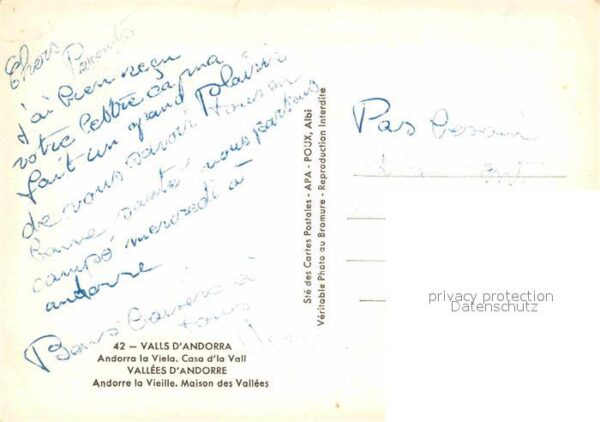 Chers Parents
J'ai bien reçu
votre lettre ca ma
fait un grand Plaisir
de vous savoir tous en
bonne santé. nous partons
campé mercredi à
andorre
Bons Baisers à
tous
Pas besoin
42 — VALLS D'ANDORRA
Andorra la Viela. Casa d'la Vall
VALLÉES D'ANDORRE
Andorre la Vieille. Maison des Vallées
Sté des Cartes Postales - APA - POUX, Albi
Véritable Photo au Bromure - Reproduction Interdite
privacy protection
Datenschutz